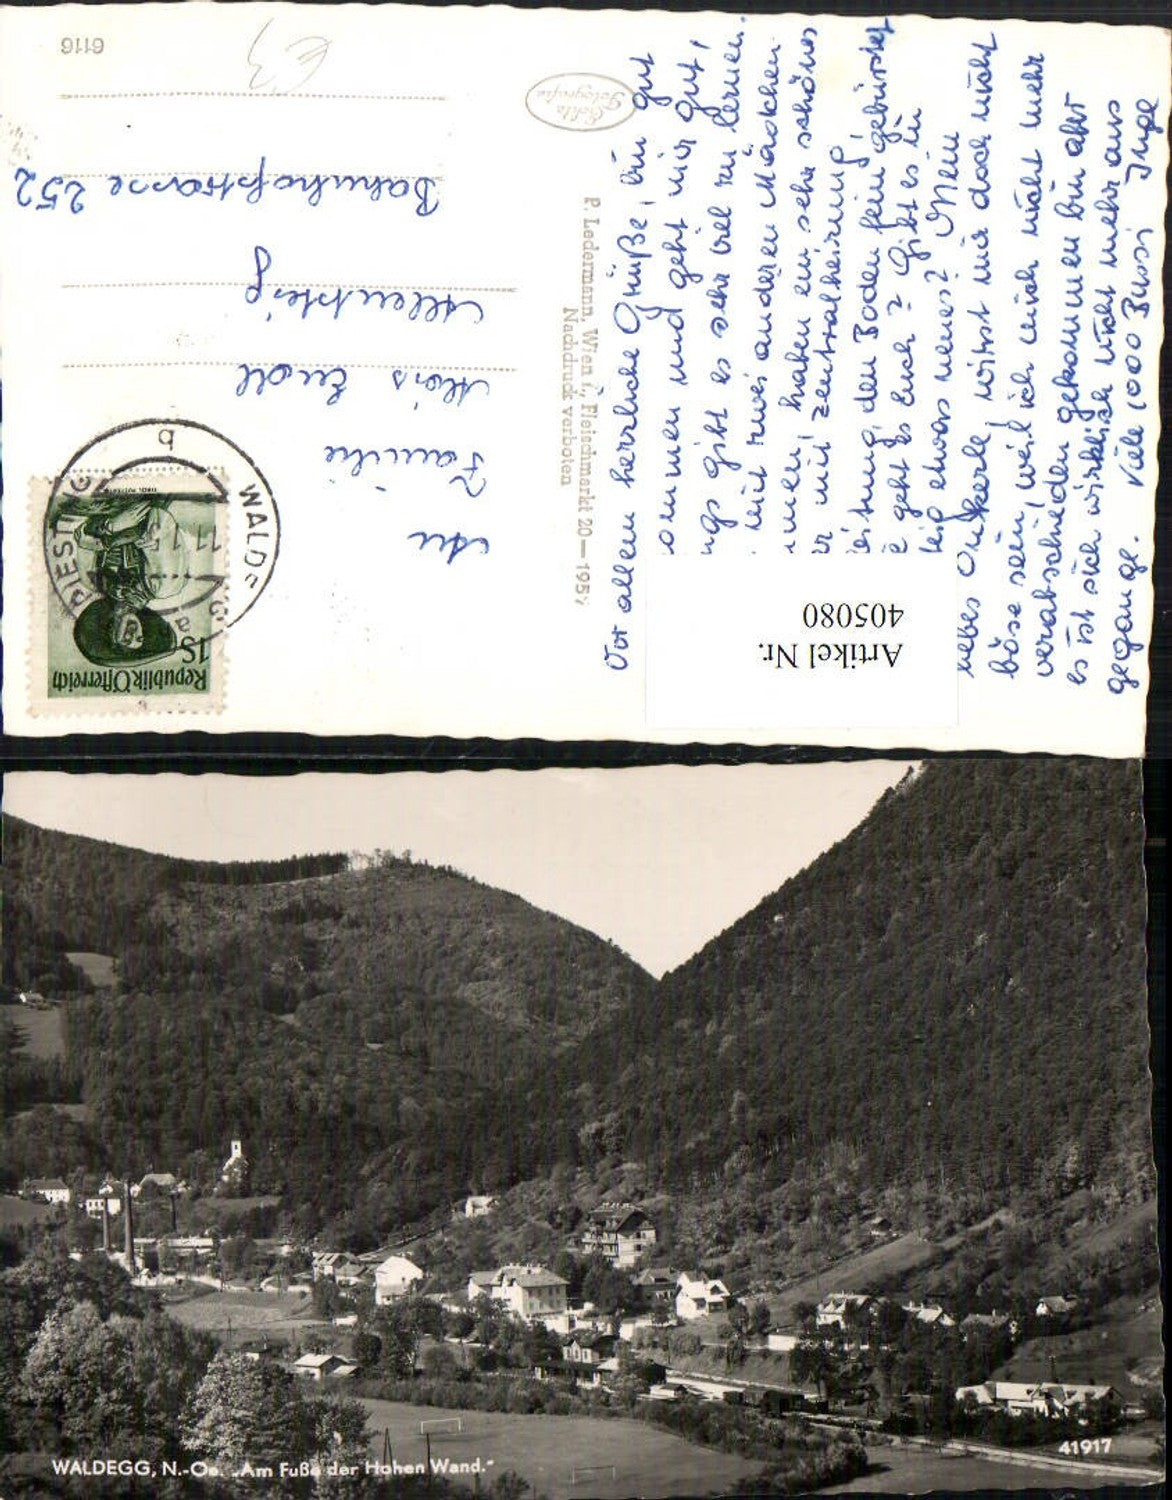 6116
€3
Echte
Fotografie
P. Ledermann, Wien I., Fleischmarkt 20—195
Nachdruck verboten
An
Familie
Alois
Allentsteig
Bahnhofstrasse 252
Republik Österreich
1S
WALD
PIESTING
b
a
Vor allem herzliche Grüße, bin gut
ommen und geht mir gut,
ngs gibt es sehr viel zu lernen.
mit zwei anderen Mädchen
immer, haben ein sehr schönes
er mit Zentralheizung
eitung, den Boden fein gebürstet
e geht es Euch? Gibt es in
teig etwas neues? Mein
liebes Onkerle, wirst mir doch nicht
böse sein, weil ich mich nicht mehr
verabschieden gekommen bin aber
es ist sich wirklich nicht mehr aus
gegange. Viele 1000 Bussi Inge
Artikel Nr.
405080
WALDEGG, N.-Oe. „Am Fuße der Hohen Wand.“
41917